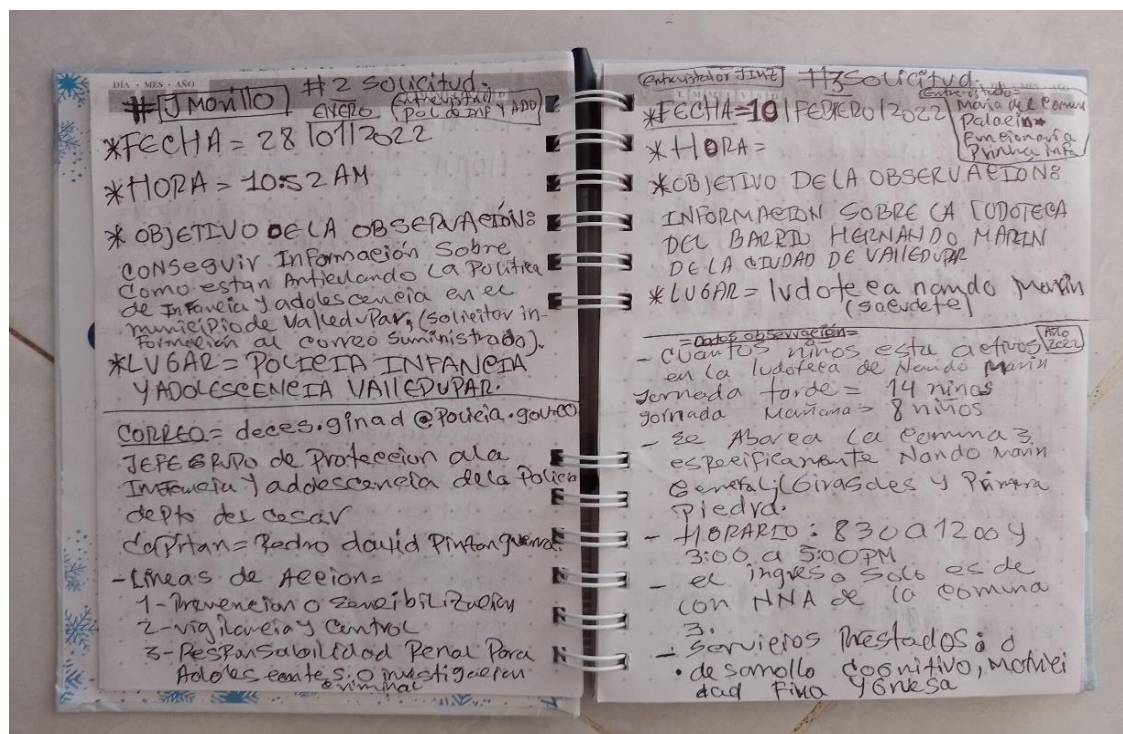 DÍA - MES - AÑO
#2 Solicitud.
# J Morillo
ENERO
Entrevistad
POL de INF Y ADO
*FECHA = 28/01/2022
*HORA = 10:52 AM
* OBJETIVO DE LA OBSERVACIÓN:
CONSEGUIR InFormación Sobre
Como estan Articulando la Politica
de InFancia y adolescencia en el
municipio de Valledupar, (solicitar in-
Formacion al correo Suministrado).
*LUGAR = POLICIA INFANCIA
Y ADOLESCENCIA VAllEDUPAR.
CORREO = deces.ginad@Policia.gov.co
JEFE GRUPO de Proteccion a la
Infancia y adolescencia de la Policia
depto del cesar
Capitan = Pedro david Pinton guerra.
- Lineas de Accion =
1- Prevencion o Sencibilización
2- vigilancia y Control
3- Responsabilidad Penal Para
Adolescentes o investigacion
criminal
Entrevistador JIMZ
#3 Solicitud.
Entrevistado=
Maria del Carmen
Palacin*
Funcionaria
Primera Infa
*FECHA=10/FEBRERO/2022
*HORA=
*OBJETIVO DE LA OBSERVACION:
INFORMACION SOBRE LA LUDOTECA
DEL BARRIO HERNANDO MARIN
DE LA CIUDAD DE VAllEDUPAR
*LUGAR = ludoteca nando Marin
(sacudete)
=Datos observación=
Año 2022
- Cuantos niños esta activos
en la ludoteca de Nando Marin
Jornada tarde = 14 niños
Jornada Mañana = 8 niños
- Se Abarca la Comuna 3.
especificamente Nando Marin
General, (Girasoles y Primera
Piedra.
- HORARIO: 830 a 1200 y
3:00 a 5:00PM
- el ingreso Solo es de
con NNA de la comuna
3.
- Servicios Prestados:
• desarrollo Cognitivo, Motrici
dad Fina Y Gruesa